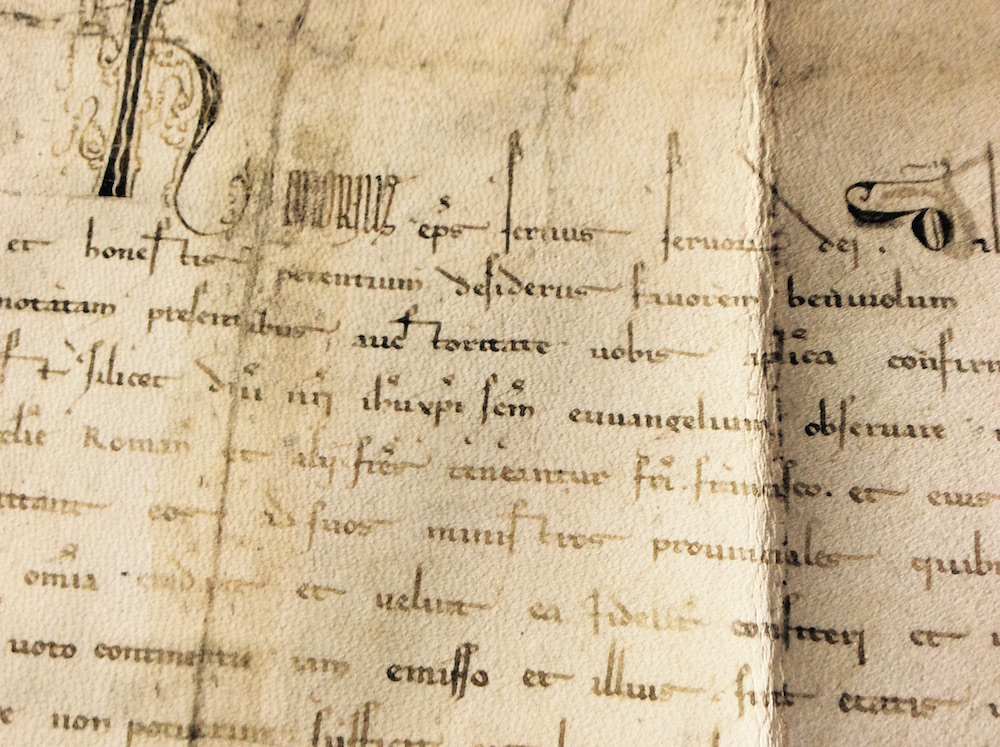 Honorius eps seruus seruorum dei. D
et honestis petentium desideriis fauorem beniuolum
notatam presentibus auctoritate uobis aplica confirm
silicet dni nri ihu xpi scm euuangelium obseruare
Roman et alij fres teneantur fri francisco. et eius
ittant eos ad suos ministros prouinciales quibu
omia et uelint ea fideliter confiteri et
uoto continentie iam emisso et illius sint etatis
non potuerunt